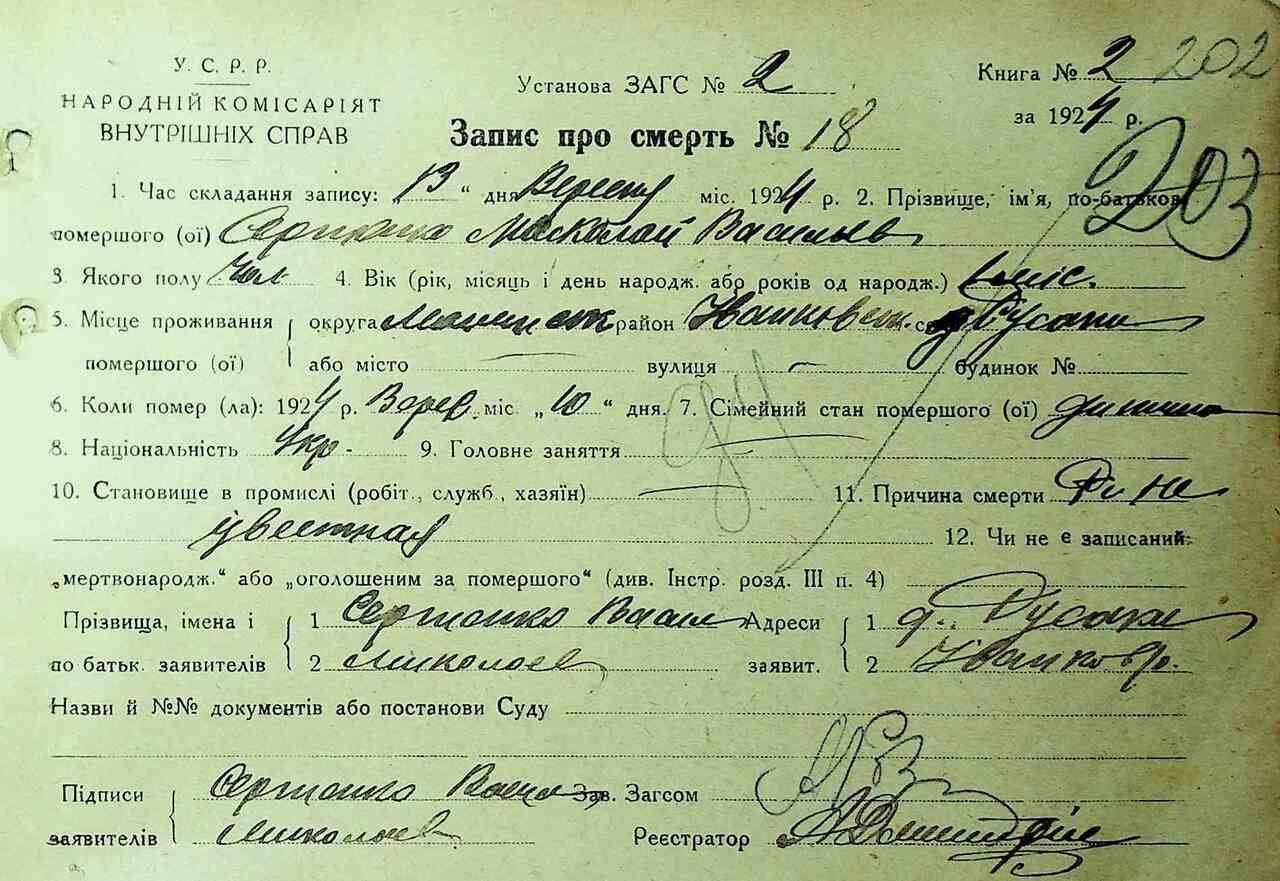 У. С. Р. Р.
НАРОДНІЙ КОМІСАРІЯТ
ВНУТРІШНІХ СПРАВ
Установа ЗАГС № 2
Книга № 2 202
за 1924 р.
203
Запис про смерть № 18
1. Час складання запису: „13“ дня Вересня міс. 1924 р. 2. Прізвище, ім'я, по-батьков.
помершого (ої) Миколай Васильев
3. Якого полу Чол 4. Вік (рік, місяць і день народж. або років од народж.) міс.
5. Місце проживання округа район Иванковск. с. Русаки
помершого (ої) або місто вулиця будинок №
6. Коли помер (ла): 1924 р. Верес. міс. „10“ дня. 7. Сімейний стан помершого (ої) дитина
8. Національність Укр. 9. Головне заняття
10. Становище в промислі (робіт., служб., хазяїн) 11. Причина смерти не
цвестная 12. Чи не є записаний:
„мертвонародж.“ або „оголошеним за помершого“ (див. Інстр. розд. III п. 4)
Прізвища, імена і 1 Сергиенко Васил Адреси 1 д. Русаки
по батьк. заявителів 2 Миколаев заявит. 2 Иванков р.
Назви й №№ документів або постанови Суду
Підписи Сергиенко Васил Зав. Загсом
заявителів Миколаев Реєстратор